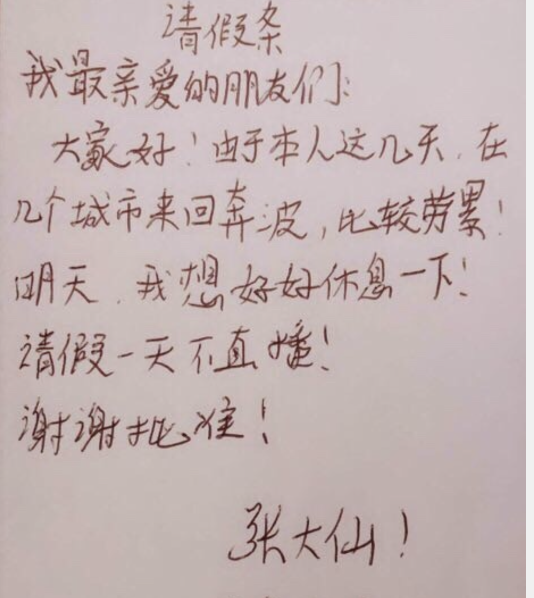 请假条
我最亲爱的朋友们:
大家好!由于本人这几天.在
几个城市来回奔波,比较劳累!
明天.我想好好休息一下!
请假一天不直播!
谢谢批准!
张大仙!